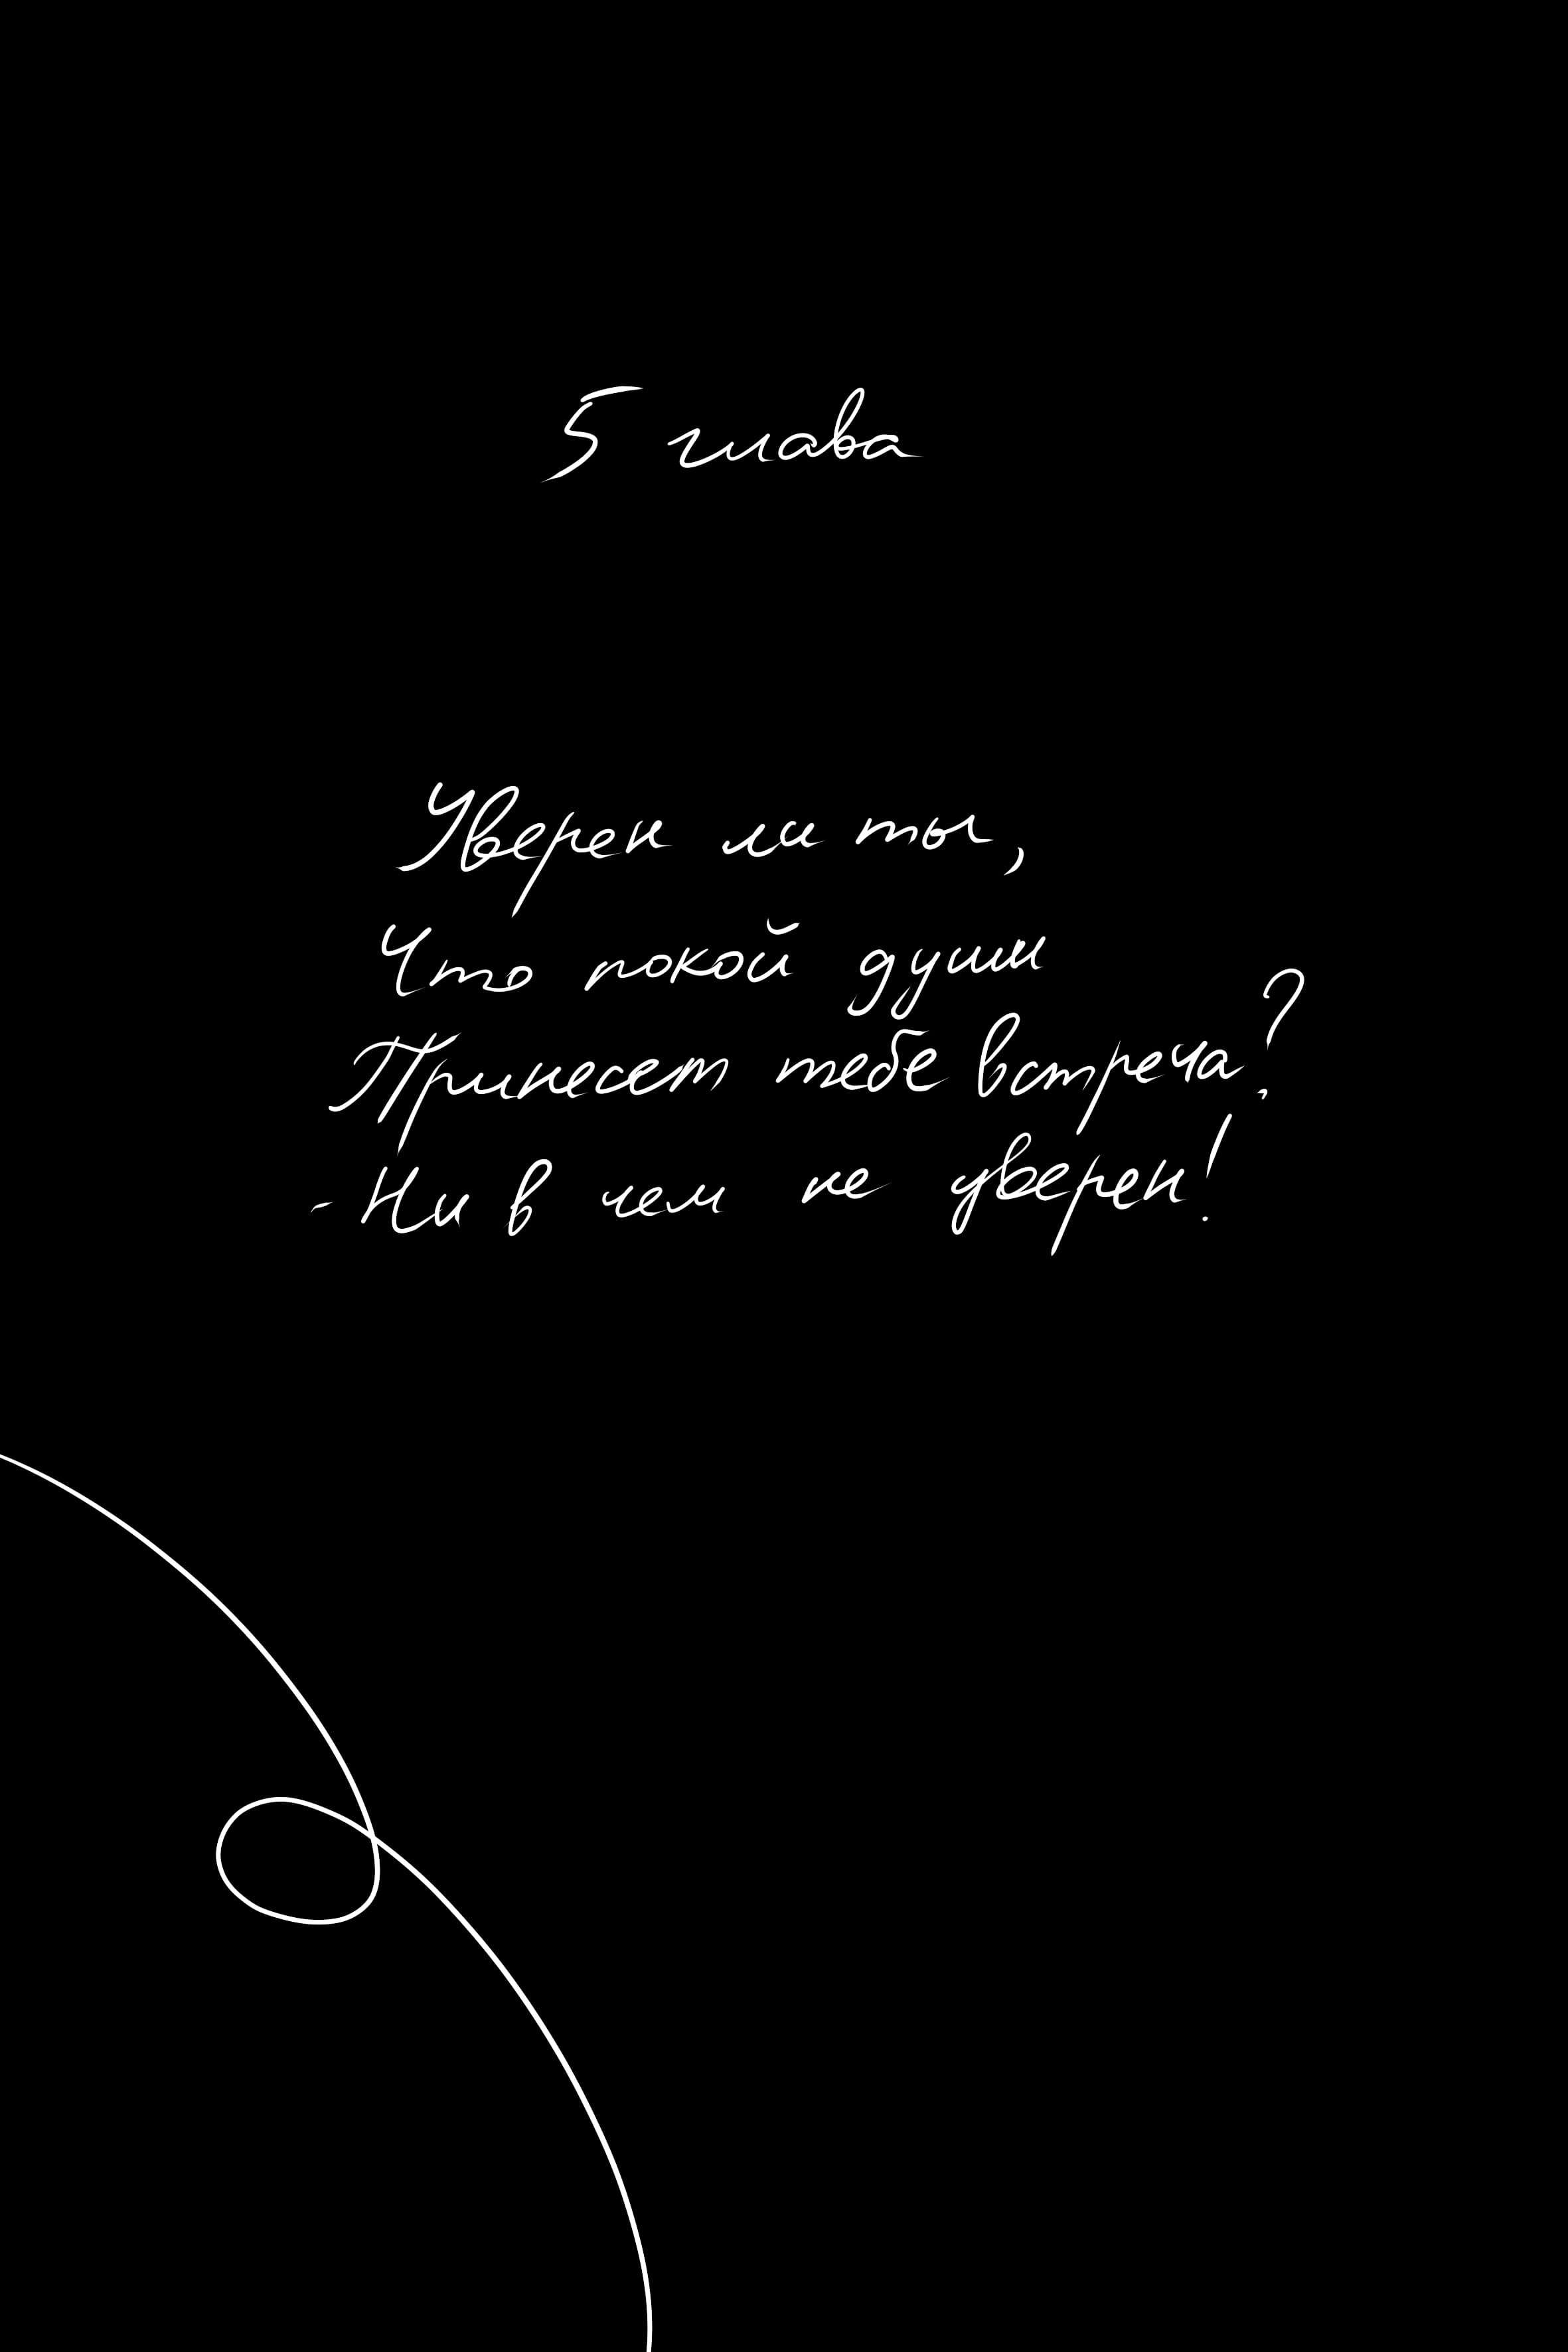 5 глава
Уверен ли ты,
Что покой души
Принесет тебе встреча?
- Ни в чем не уверен!